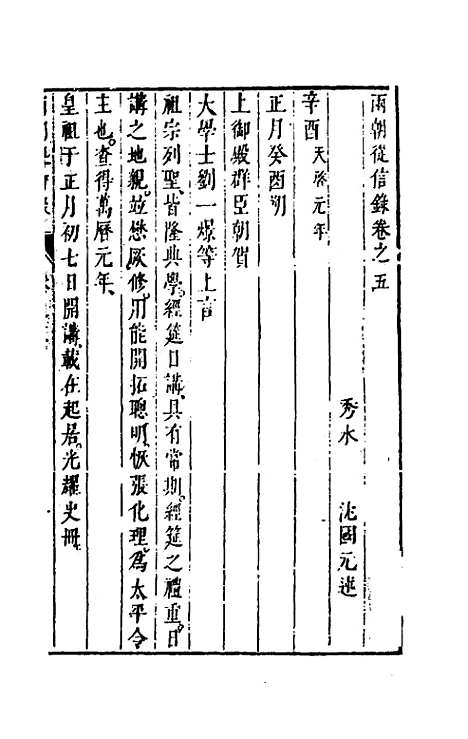 兩朝從信錄卷之五
秀水 沈國元述
辛酉天啓元年
正月癸酉朔
上御殿群臣朝賀
大學士劉一燝等上言
祖宗列聖皆隆典學經筵日講具有常期經筵之禮重日
講之地親並懋厥修用能開拓聰明恢張化理爲太平令
主也查得萬曆元年
皇祖于正月初七日開講載在起居光耀史冊